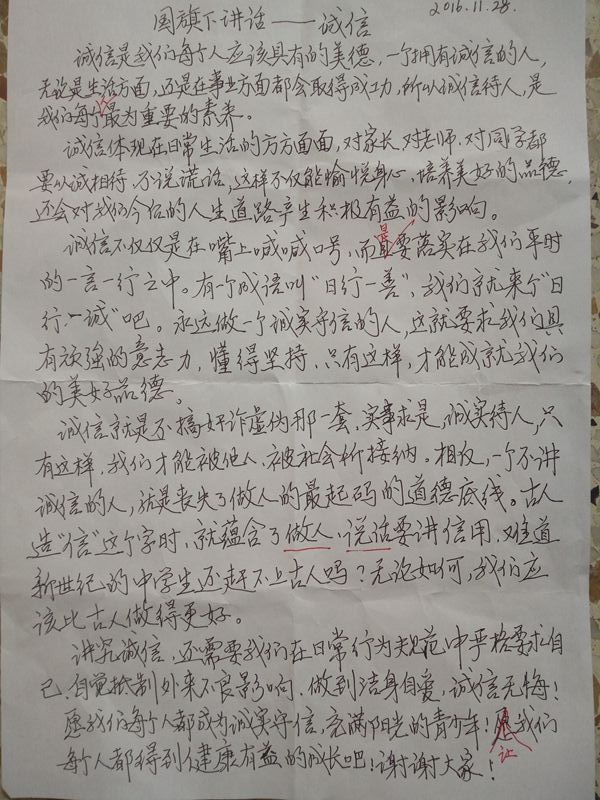 国旗下讲话——诚信
2016.11.28.
诚信是我们每个人应该具有的美德，一个拥有诚信的人，
无论是生活方面，还是在事业方面都会取得成功，所以诚信待人，是
我们每个人最为重要的素养。
诚信体现在日常生活的方方面面，对家长、对老师、对同学都
要以诚相待，不说谎话，这样不仅能愉悦身心、培养美好的品德，
还会对我们今后的人生道路产生积极有益的影响。
诚信不仅仅是在嘴上喊喊口号，而是要落实在我们平时
的一言一行之中。有一个成语叫“日行一善”，我们就来个“日
行一诚”吧。永远做一个诚实守信的人，这就要求我们具
有顽强的意志力，懂得坚持，只有这样，才能成就我们
的美好品德。
诚信就是不搞奸诈虚伪那一套，实事求是，诚实待人，只
有这样，我们才能被他人、被社会所接纳。相反，一个不讲
诚信的人，就是丧失了做人的最起码的道德底线。古人
造“信”这个字时，就蕴含了做人、说话要讲信用，难道
新世纪的中学生还赶不上古人吗？无论如何，我们应
该比古人做得更好。
讲究诚信，还需要我们在日常行为规范中严格要求自
己，自觉抵制外来不良影响，做到洁身自爱，诚信无悔！
愿我们每个人都成为诚实守信，充满阳光的青少年！让我们
每个人都得到健康有益的成长吧！谢谢大家！